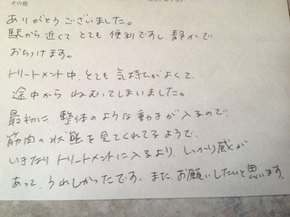 その他
ありがとうございました。
駅から近くてとても便利ですし静かで
おちつけます。
トリートメント中、とても気持ちがよくて、
途中からねむってしまいました。
最初に整体のような動きが入るので、
筋肉の状態を見てくれてるようで、
いきなりトリートメントに入るより、しっかり感が
あって、うれしかったです。また、お願いしたいと思います。